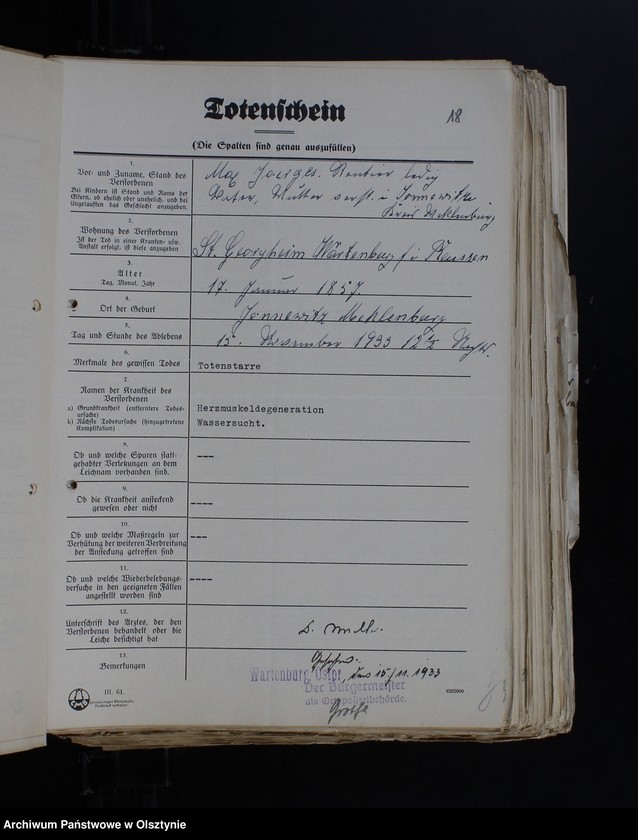 Totenschein
18
(Die Spalten sind genau auszufüllen)
1.
Vor- und Zuname, Stand des
Verstorbenen
Bei Kindern ist Stand und Name der
Eltern, ob ehelich oder unehelich, und bei
Ungetauften das Geschlecht anzugeben.
Max Joerges. Rentier ledig
Vater, Mutter verst. i Jonnewitz
Kreis Mecklenburg
2.
Wohnung des Verstorbenen
Ist der Tod in einer Kranken- usw.
Anstalt erfolgt, ist diese anzugeben
St. Georgheim Wartenburg / i Preussen
3.
Alter
Tag, Monat, Jahr
17. Januar 1857
4.
Ort der Geburt
Jonnewitz Mecklenburg
5.
Tag und Stunde des Ablebens
15. November 1933 12 1/2
6.
Merkmale des gewissen Todes
Totenstarre
7.
Namen der Krankheit des
Verstorbenen
a) Grundkrankheit (entferntere Todes-
ursache)
b) Nächste Todesursache (hinzugetretene
Komplikation)
Herzmuskeldegeneration
Wassersucht.
8.
Ob und welche Spuren statt-
gehabter Verletzungen an dem
Leichnam vorhanden sind.
---
9.
Ob die Krankheit ansteckend
gewesen oder nicht
----
10.
Ob und welche Maßregeln zur
Verhütung der weiteren Verbreitung
der Ansteckung getroffen sind
---
11.
Ob und welche Wiederbelebungs-
versuche in den geeigneten Fällen
angestellt worden sind
----
12.
Unterschrift des Arztes, der den
Verstorbenen behandelt oder die
Leiche besichtigt hat
13.
Bemerkungen
Gesehen.
Wartenburg, Ostpr., den 15/11. 1933
Der Bürgermeister
als Ortspolizeibehörde.
III. 61.
Archiwum Państwowe w Olsztynie